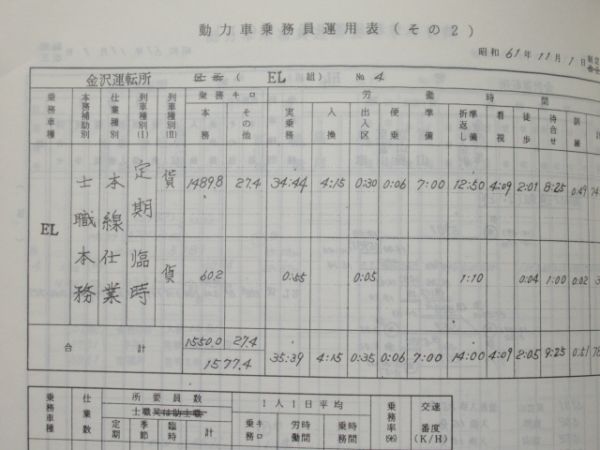 動力車乗務員運用表(その2)
昭和 61年 11月 1日
金沢運転所 ( EL 組) № 4
乗務キロ 労働時間
乗務車種 本務補助別 仕業種別 列車種別(I) 列車種別(II) 本務 その他 実乗務 入換 出入区 便乗 準備 折返し準備 看視 徒歩 待合せ 訓練
EL 士職本務 本線仕業 定期 貨 1489.8 27.4 34:44 4:15 0:30 0:06 7:00 12:50 4:09 2:01 8:25 0.49
臨時 貨 60.2 0:55 0:05 1:10 0:04 1:00 0.02
合計 1550.0 27.4
1577.4 35:39 4:15 0:35 0:06 7:00 14:00 4:09 2:05 9:25 0.51
乗務車種 仕業数 所要員数 1人1日平均 乗務率(%) 交速番度(K/H)
士職又は助士職
定期 季節 臨時 計 乗務キロ 労働時間 乗務時間